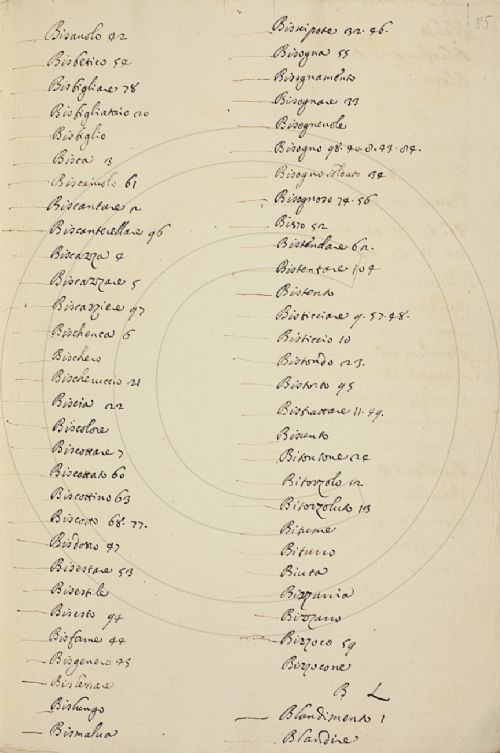 Bisauolo 42
Bisbetico 54
Bisbigliare 78
Bisbigliatoio 20
Bisbiglio
Bisca 13
Biscaiuolo 61
Biscantare 2
Biscanterellare 96
Biscazza 4
Biscazzare 5
Biscazziere 97
Bischenca 6
Bischero
Bischeruccio 21
Biscia 22
Biscolore
Biscottare 7
Biscottato 60
Biscottino 63
Biscotto 68. 77.
Bisdosso 47
Bisestare 53
Bisestile
Bisesto 94
Bisfame 44
Bisgenero 45
Bislessare
Bislungo
Bismalua
85
Bisnipote 32. 46.
Bisogna 55
Bisognamento
Bisognare 33
Bisogneuole
Bisogno 98. 40. 8. 43. 84.
Bisogno 34
Bisognoso 74. 56
Bisso 52
Bistendare 62.
Bistentare 104
Bistento
Bisticciare 9. 57. 48.
Bisticcio 10
Bistondo 23.
Bistorto 95
Bistrattare 11. 49.
Bisunto
Bitontone 24
Bitorzolo 12
Bitorzoluto 13
Bitume
Biturro
Biuta
Bizzarria
Bizzarro
Bizzoco 59
Bizzocone
B L
Blandimento 1
Blandire